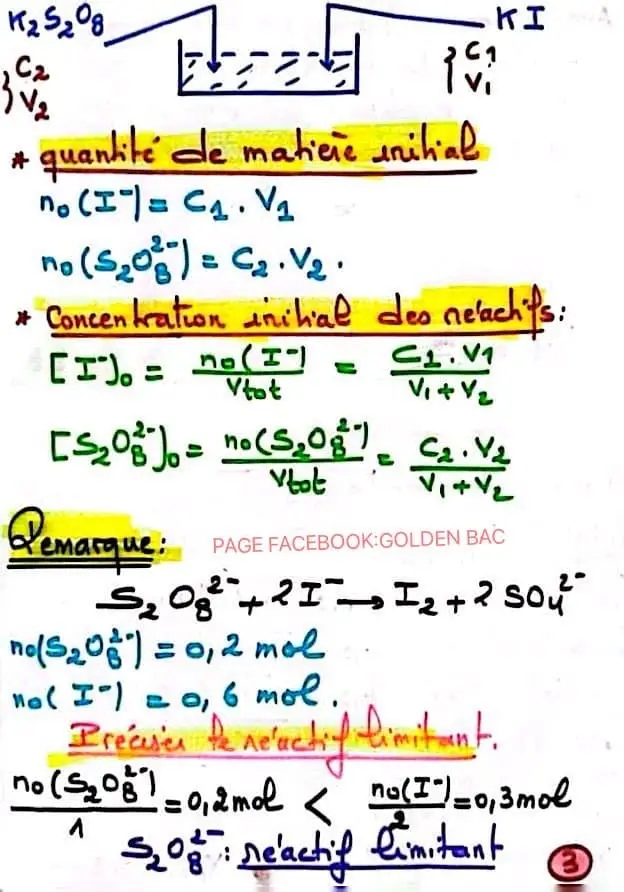 K₂S₂O₈ KI
{ C₂ V₂ { C₁ V₁
* quantité de matière initial
n₀(I⁻) = C₁ . V₁
n₀(S₂O₈²⁻) = C₂ . V₂ .
* Concentration initial des réactifs :
[I⁻]₀ = n₀(I⁻) / Vtot = C₁ . V₁ / V₁ + V₂
[S₂O₈²⁻]₀ = n₀(S₂O₈²⁻) / Vtot = C₂ . V₂ / V₁ + V₂
Remarque :
PAGE FACEBOOK:GOLDEN BAC
S₂O₈²⁻ + 2I⁻ → I₂ + 2SO₄²⁻
n₀(S₂O₈²⁻) = 0,2 mol
n₀(I⁻) = 0,6 mol.
Préciser le réactif limitant.
n₀(S₂O₈²⁻) / 1 = 0,2mol < n₀(I⁻) / 2 = 0,3mol
S₂O₈²⁻ : réactif limitant
3